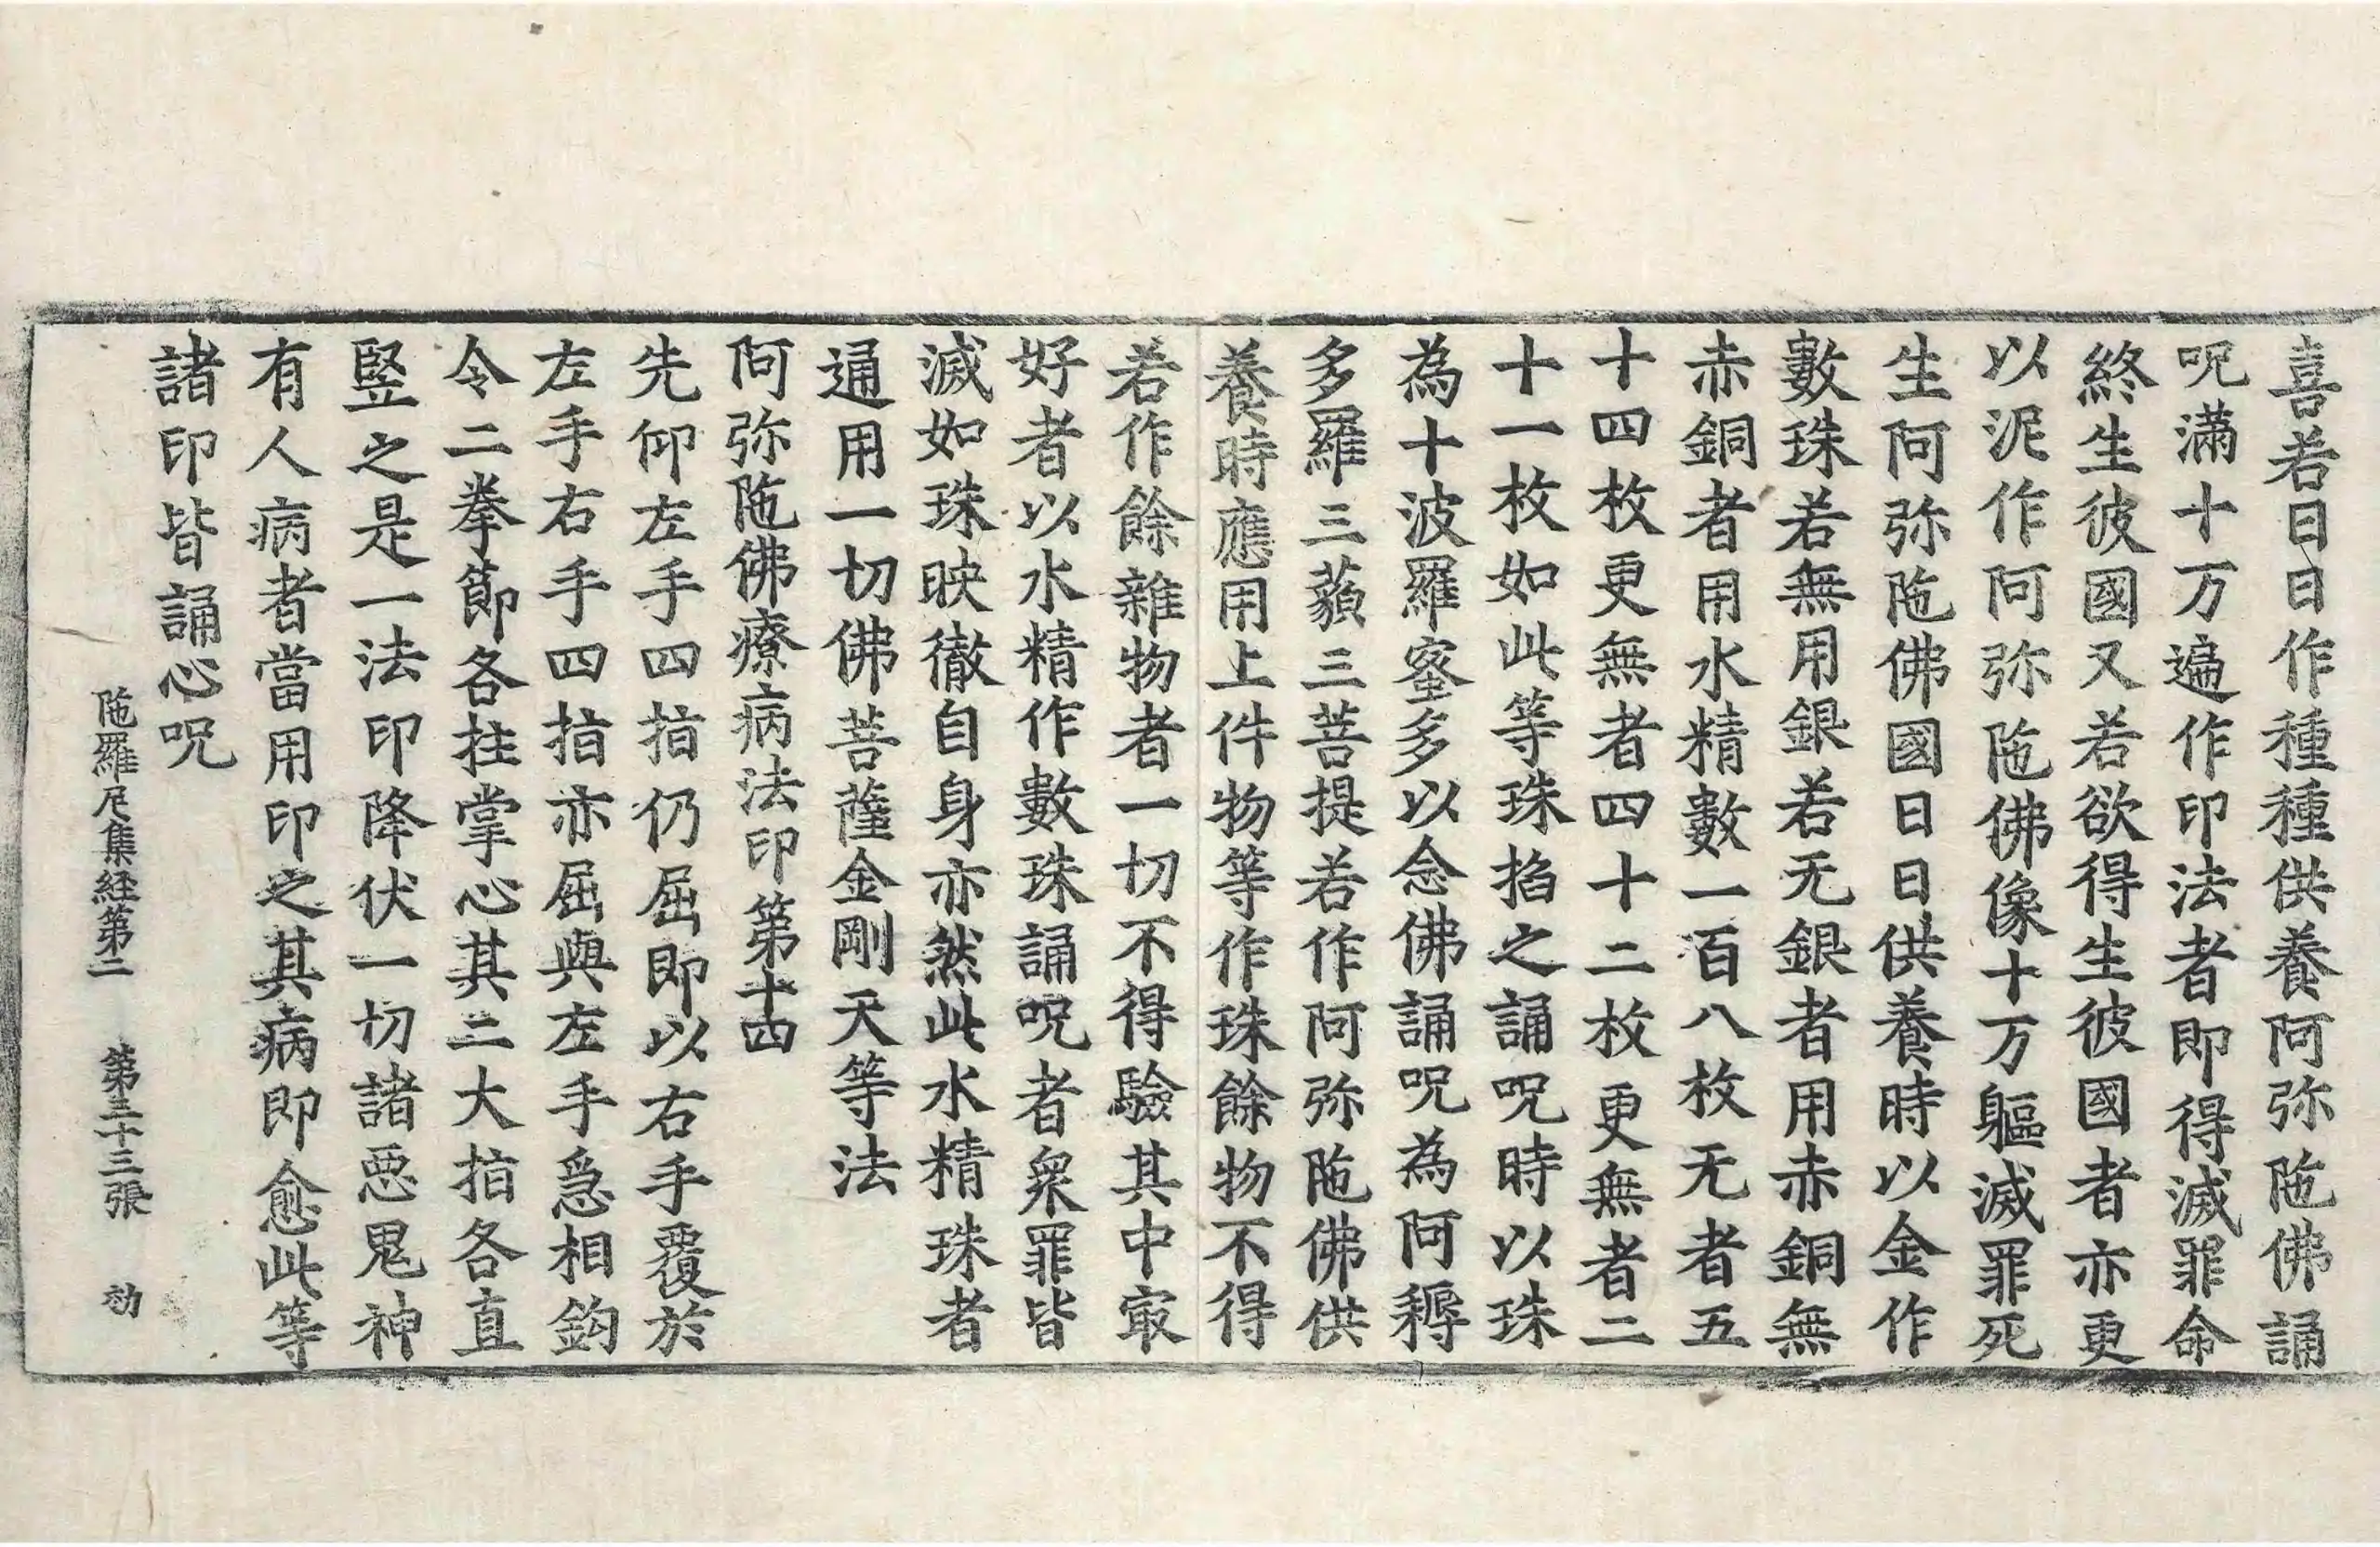 喜若日日作種種供養阿弥陁佛誦
呪滿十万遍作印法者即得滅罪命
終生彼國又若欲得生彼國者亦更
以泥作阿弥陁佛像十万軀滅罪死
生阿弥陁佛國日日供養時以金作
數珠若無用銀若无銀者用赤銅無
赤銅者用水精數一百八枚无者五
十四枚更無者四十二枚更無者二
十一枚如此等珠掐之誦呪時以珠
為十波羅蜜多以念佛誦呪為阿耨
多羅三藐三菩提若作阿弥陁佛供
養時應用上件物等作珠餘物不得
若作餘雜物者一切不得驗其中㝡
好者以水精作數珠誦呪者衆罪皆
滅如珠映徹自身亦然此水精珠者
通用一切佛菩薩金剛天等法
阿弥陁佛療病法印第十四
先仰左手四指仍屈即以右手覆於
左手右手四指亦屈與左手急相鈎
令二拳節各拄掌心其二大指各直
竪之是一法印降伏一切諸惡鬼神
有人病者當用印之其病即愈此等
諸印皆誦心呪
陁羅尼集経第二 第三十三張 劾